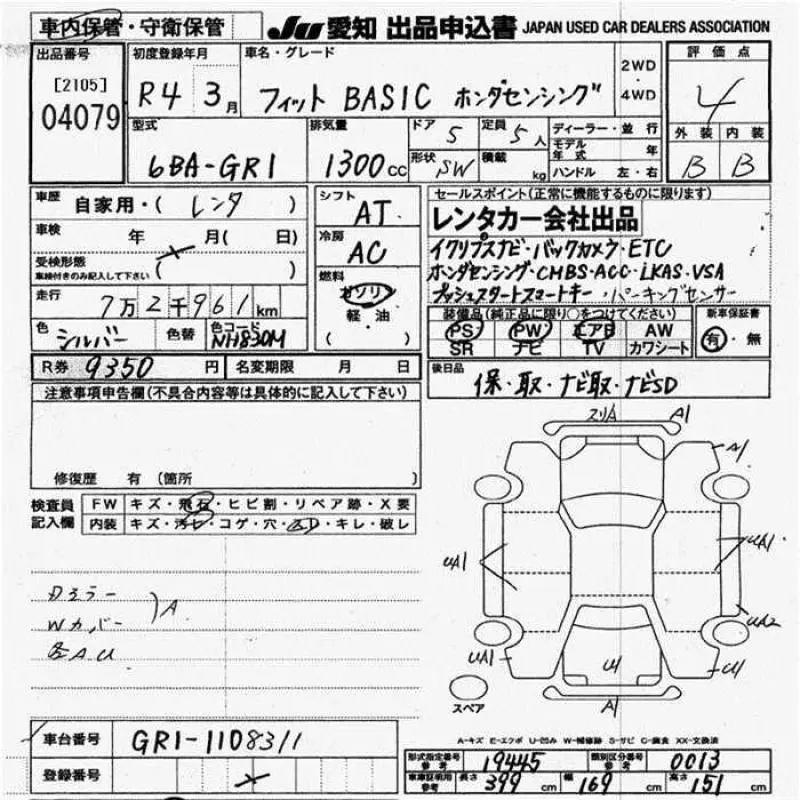 車内保管・守衛保管 JU 愛知 出品申込書 JAPAN USED CAR DEALERS ASSOCIATION
出品番号 初度登録年月 車名・グレード 2WD・4WD 評価点
[2105]
04079 R4 3月 フィット BASIC ホンダセンシング 4
型式 排気量 ドア 5 定員 5人 ディーラー・並行 外装 内装
6BA-GR1 1300cc 形状 SW 積載 kg モデル年式 年 B B
ハンドル 左・右
車歴 自家用・( レンタ ) シフト AT セールスポイント(正常に機能するものに限ります)
車検 年 月( 日) 冷房 AC レンタカー会社出品
受検形態 車検付きのみ記入して下さい ( ) イクリプスナビ・バックカメラ・ETC
ホンダセンシング・CMBS・ACC・LKAS・VSA
走行 7万2千961km 燃料 ガソリン 軽・油 ( ) プッシュスタートスマートキー・パーキングセンサー
色 シルバー 色替 色コード NH830M 装備品(純正品に限り○をつけてください) 新車保証書
PS PW エアB AW 有・無
SR ナビ TV カワシート
R券 9350円 名変期限 月 日 後日品 保・取・ナビ取・ナビSD
注意事項申告欄(不具合内容等は具体的に記入して下さい)
修復歴 有 (箇所 )
検査員記入欄 FW キズ・飛石・ヒビ割・リペア跡・X要
内装 キズ・汚レ・コゲ・穴・スレ・キレ・破レ
スリA A1
A1
UA1 UA1
UA2
UA1 U1 U1
A1
スペア
Dミラー
Wカバー
A
各A.U
A-キズ E-エクボ U-凹み W-補修跡 S-サビ C-腐食 XX-交換済
車台番号 GR1-1108311 形式指定番号 参考 19445 類別区分番号 参考 0013
登録番号 車庫証明用 参考 長さ 399cm 幅 169cm 高さ 151cm